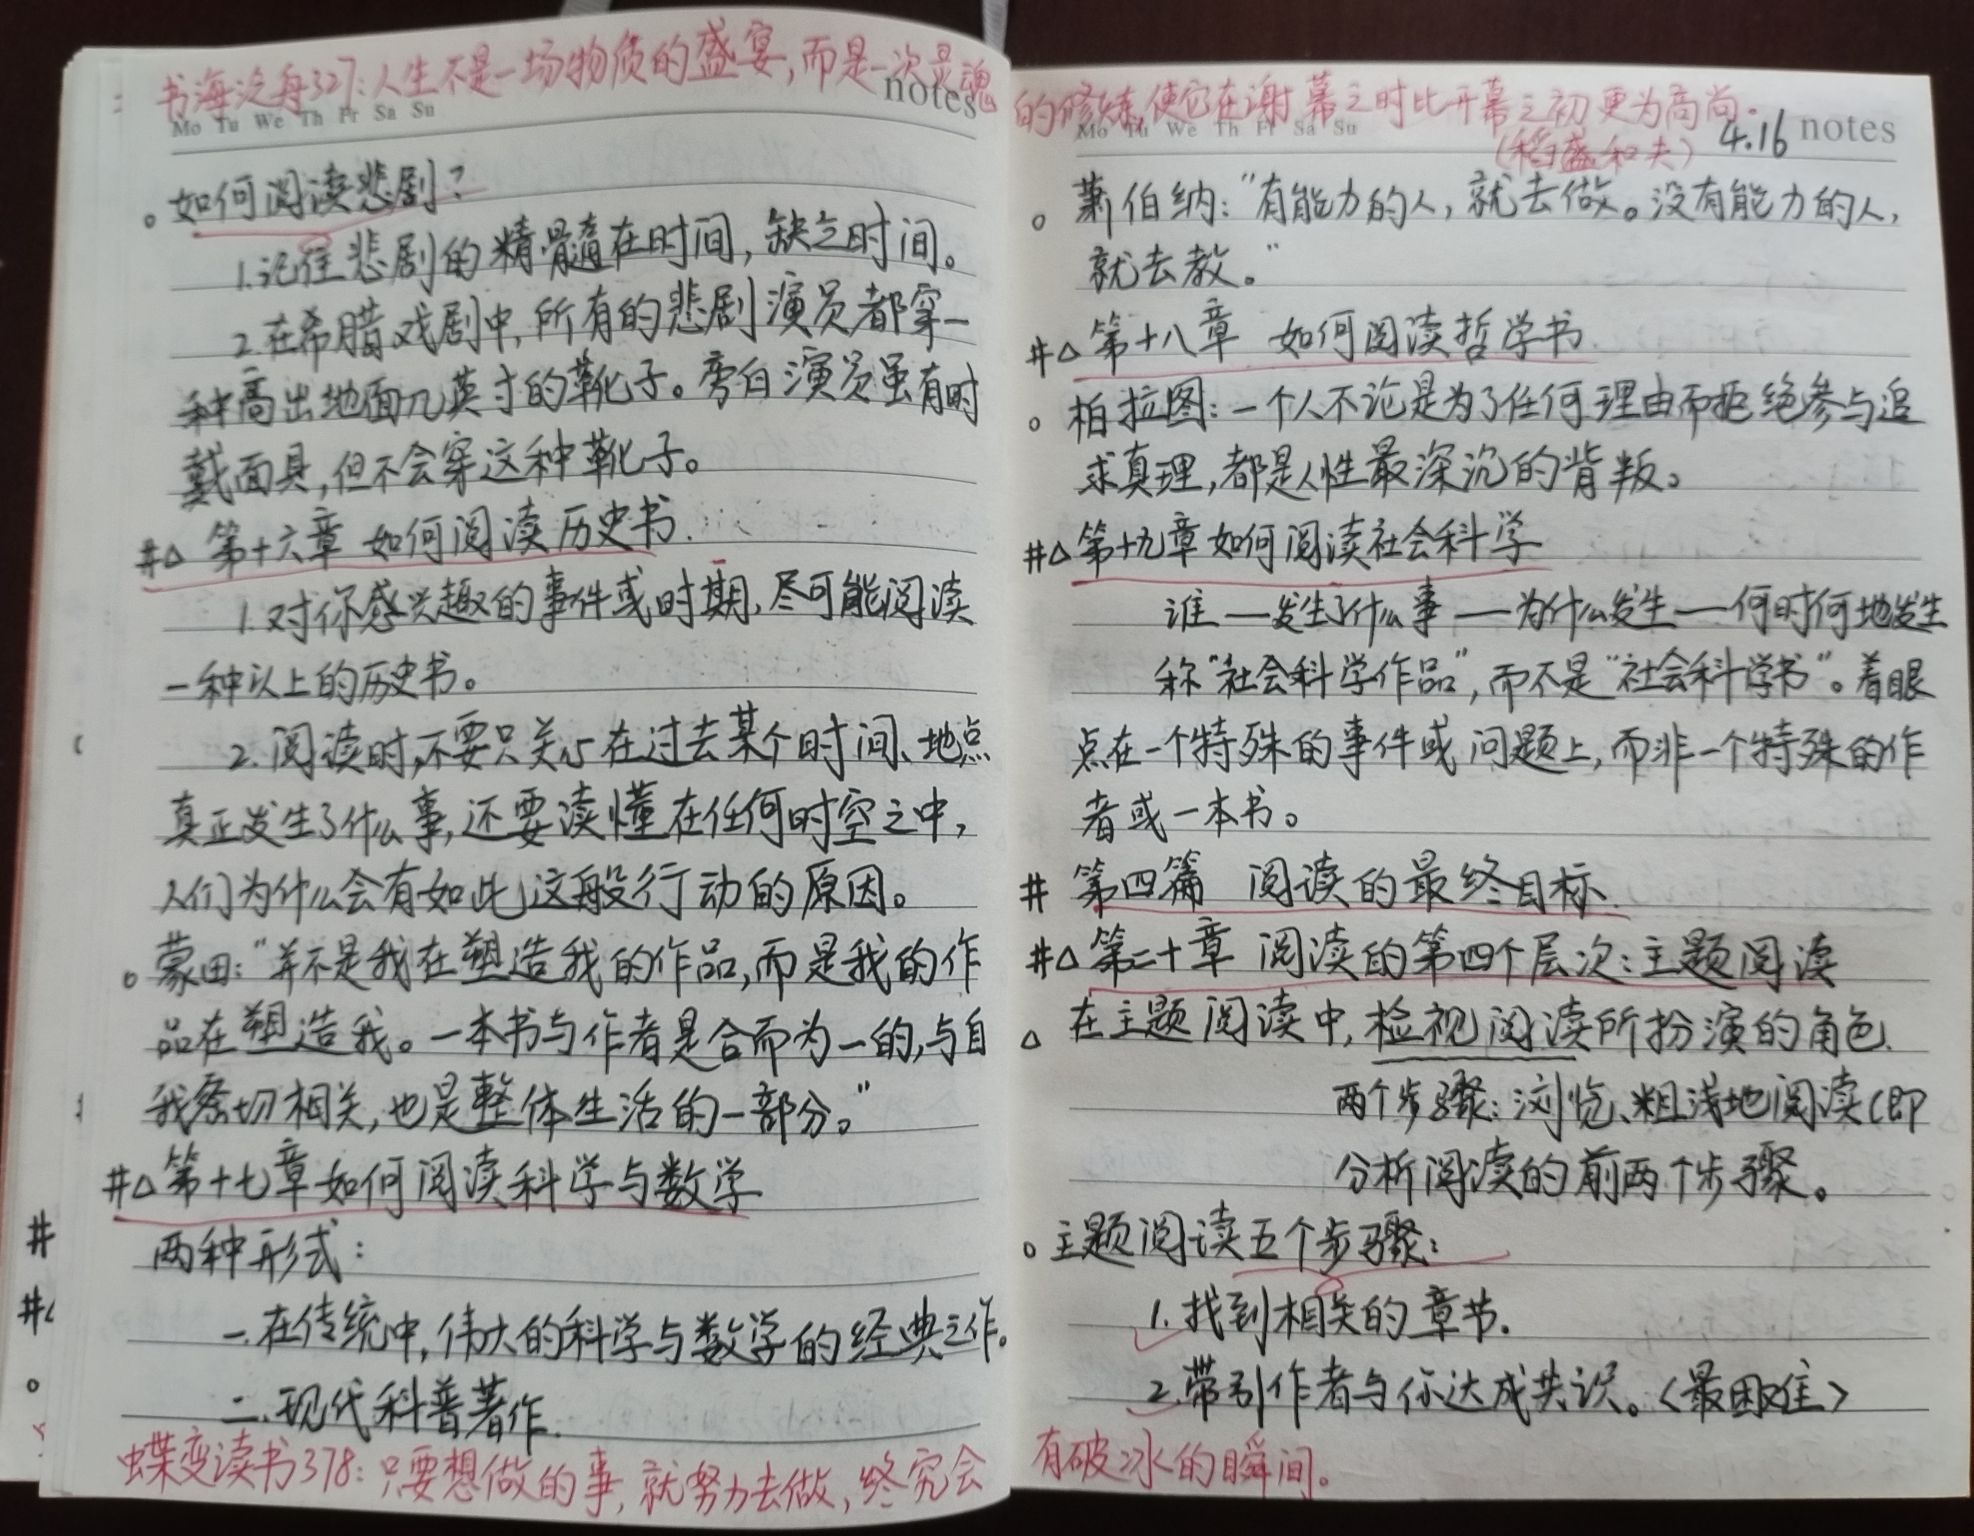 书海泛舟327:人生不是一场物质的盛宴,而是一次灵魂
notes
Mo Tu We Th Fr Sa Su
。如何阅读悲剧?
1.记住悲剧的精髓在时间,缺乏时间。
2.在希腊戏剧中,所有的悲剧演员都穿一
种高出地面几英寸的靴子。旁白演员虽有时
戴面具,但不会穿这种靴子。
#△第十六章 如何阅读历史书.
1.对你感兴趣的事件或时期,尽可能阅读
一种以上的历史书。
2.阅读时,不要只关心在过去某个时间、地点
真正发生了什么事,还要读懂在任何时空之中,
人们为什么会有如此这般行动的原因。
。蒙田:“并不是我在塑造我的作品,而是我的作
品在塑造我。一本书与作者是合而为一的,与自
我密切相关,也是整体生活的一部分。”
#△第十七章如何阅读科学与数学
两种形式:
一.在传统中,伟大的科学与数学的经典之作。
二.现代科普著作.
蝶变读书378:只要想做的事,就努力去做,终究会
的修炼,使它在谢幕之时比开幕之初更为高尚.
Mo Tu We Th Fr Sa Su
(稻盛和夫) 4.16 notes
。萧伯纳:“有能力的人,就去做。没有能力的人,
就去教。”
#△第十八章 如何阅读哲学书
。柏拉图:一个人不论是为了任何理由而拒绝参与追
求真理,都是人性最深沉的背叛。
#△第十九章如何阅读社会科学
谁—发生了什么事—为什么发生—何时何地发生
称“社会科学作品”,而不是“社会科学书”。着眼
点在一个特殊的事件或问题上,而非一个特殊的作
者或一本书。
# 第四篇 阅读的最终目标.
#△第二十章 阅读的第四个层次:主题阅读
△在主题阅读中,检视阅读所扮演的角色.
两个步骤:浏览、粗浅地阅读(即
分析阅读的前两个步骤。
。主题阅读五个步骤:
1.找到相关的章节.
2.带引作者与你达成共识。<最困难>
有破冰的瞬间。
#
#